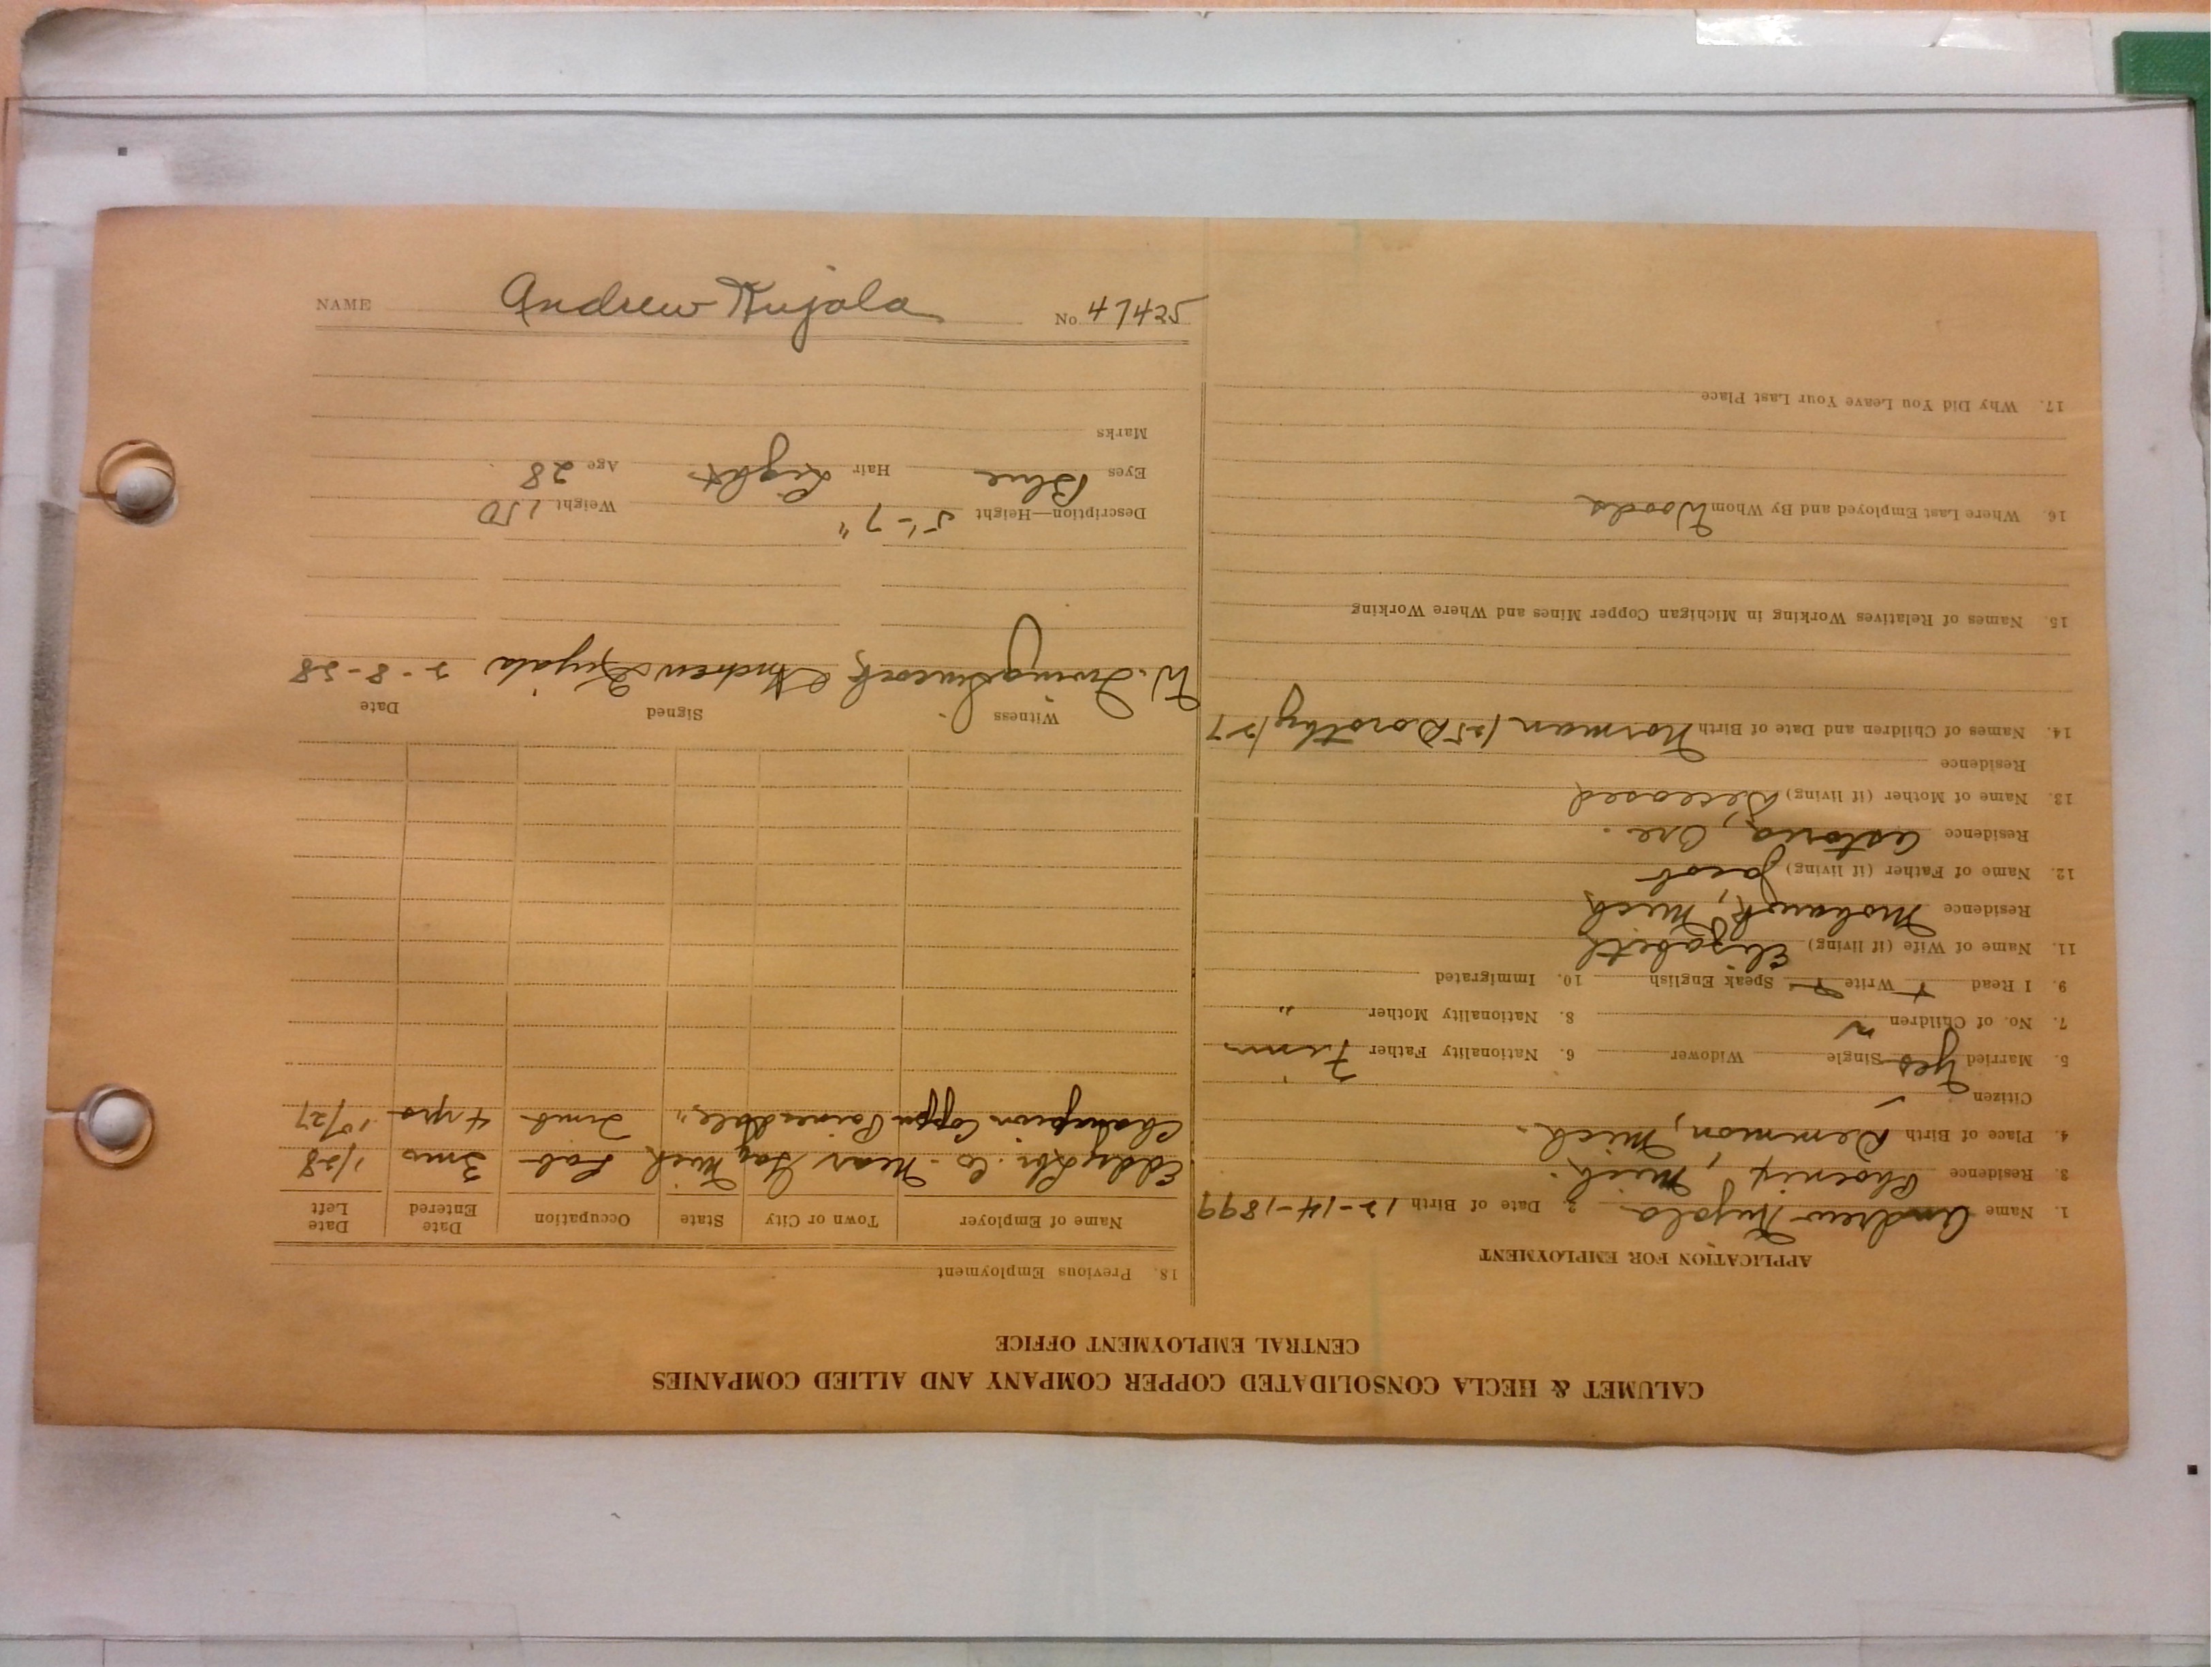 CALUMET & HECLA CONSOLIDATED COPPER COMPANY AND ALLIED COMPANIES
CENTRAL EMPLOYMENT OFFICE
APPLICATION FOR EMPLOYMENT
1. Name Andrew Kujala 2. Date of Birth 12-14-1899
3. Residence Phoenix, Mich.
4. Place of Birth Demmon, Mich.
Citizen
5. Married Yes Single Widower 6. Nationality Father Finn
7. No. of Children 2 8. Nationality Mother "
9. I Read Write Speak English 10. Immigrated
11. Name of Wife (if living) Elizabeth
Residence Mohawk, Mich
12. Name of Father (if living) Jacob
Residence Astoria, Ore.
13. Name of Mother (if living) Deceased
Residence
14. Names of Children and Date of Birth Norman /25 Dorothy /27
15. Names of Relatives Working in Michigan Copper Mines and Where Working
16. Where Last Employed and By Whom Woods
17. Why Did You Leave Your Last Place
18. Previous Employment
Name of Employer Town or City State Occupation Date Entered Date Left
Eddy Lbr. Co. Near Gay Mich Lab 3 mo 1/28
Champion Copper Painesdale " 4 yrs 10/27
Witness Signed Date
W. Andrew Kujala 2-8-28
Description—Height 5'-7" Weight 150
Eyes Blue Hair Light Age 28
Marks
NAME Andrew Kujala No. 47425